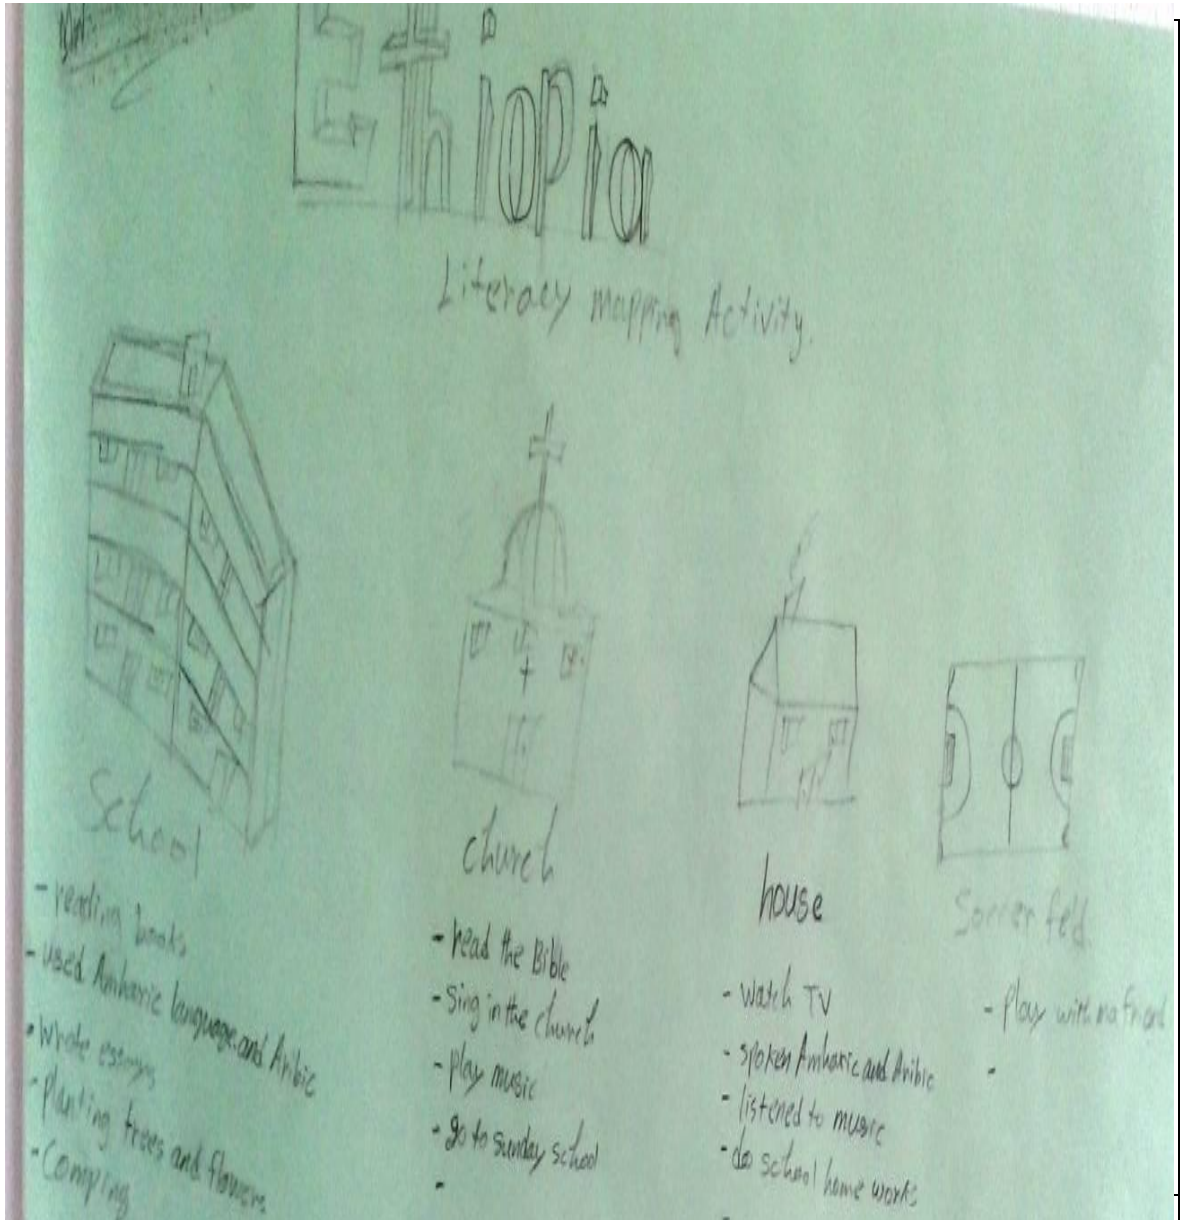 Ethiopia
Literacy mapping Activity.
School
- reading books
- used Amharic language and Aribic
- wrote essays
- Planting trees and flowers
- Comping
church
- read the Bible
- Sing in the church
- play music
- go to sunday school
-
house
- watch TV
- spoken Amharic and Aribic
- listened to music
- do school home works
-
Soccer feld.
- Play with
-